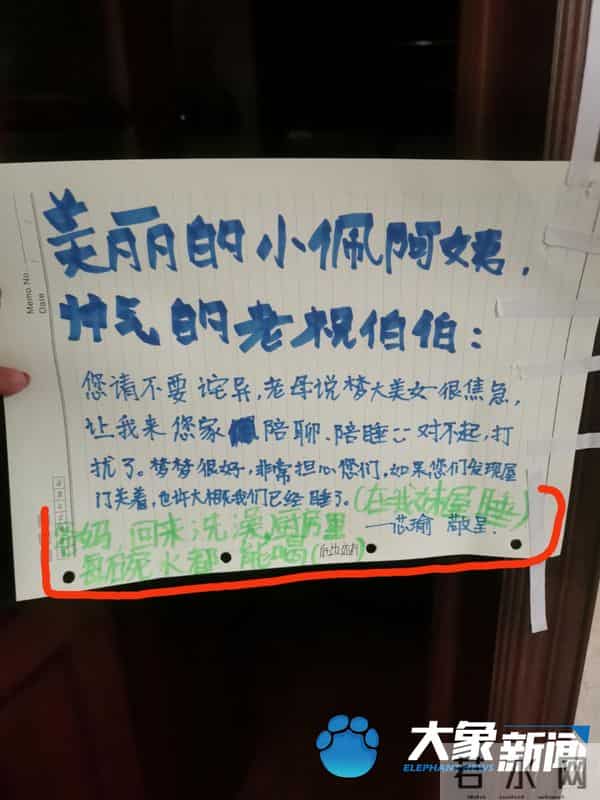 Memo No.
Date
美丽的小佩阿姨，
帅气的老祝伯伯：
您请不要诧异，老母说梦大美女很焦急，
让我来您家陪聊、陪睡 对不起，打
扰了。梦梦很好，非常担心您们，如果您们发现屋
门关着，也许大概我们已经睡了。(在我妹屋睡)
爸妈 回来洗澡，厨房里
——芯瑜 敬呈.
每碗水都能喝
大象新闻
ELEPHANT NEWS
若水网